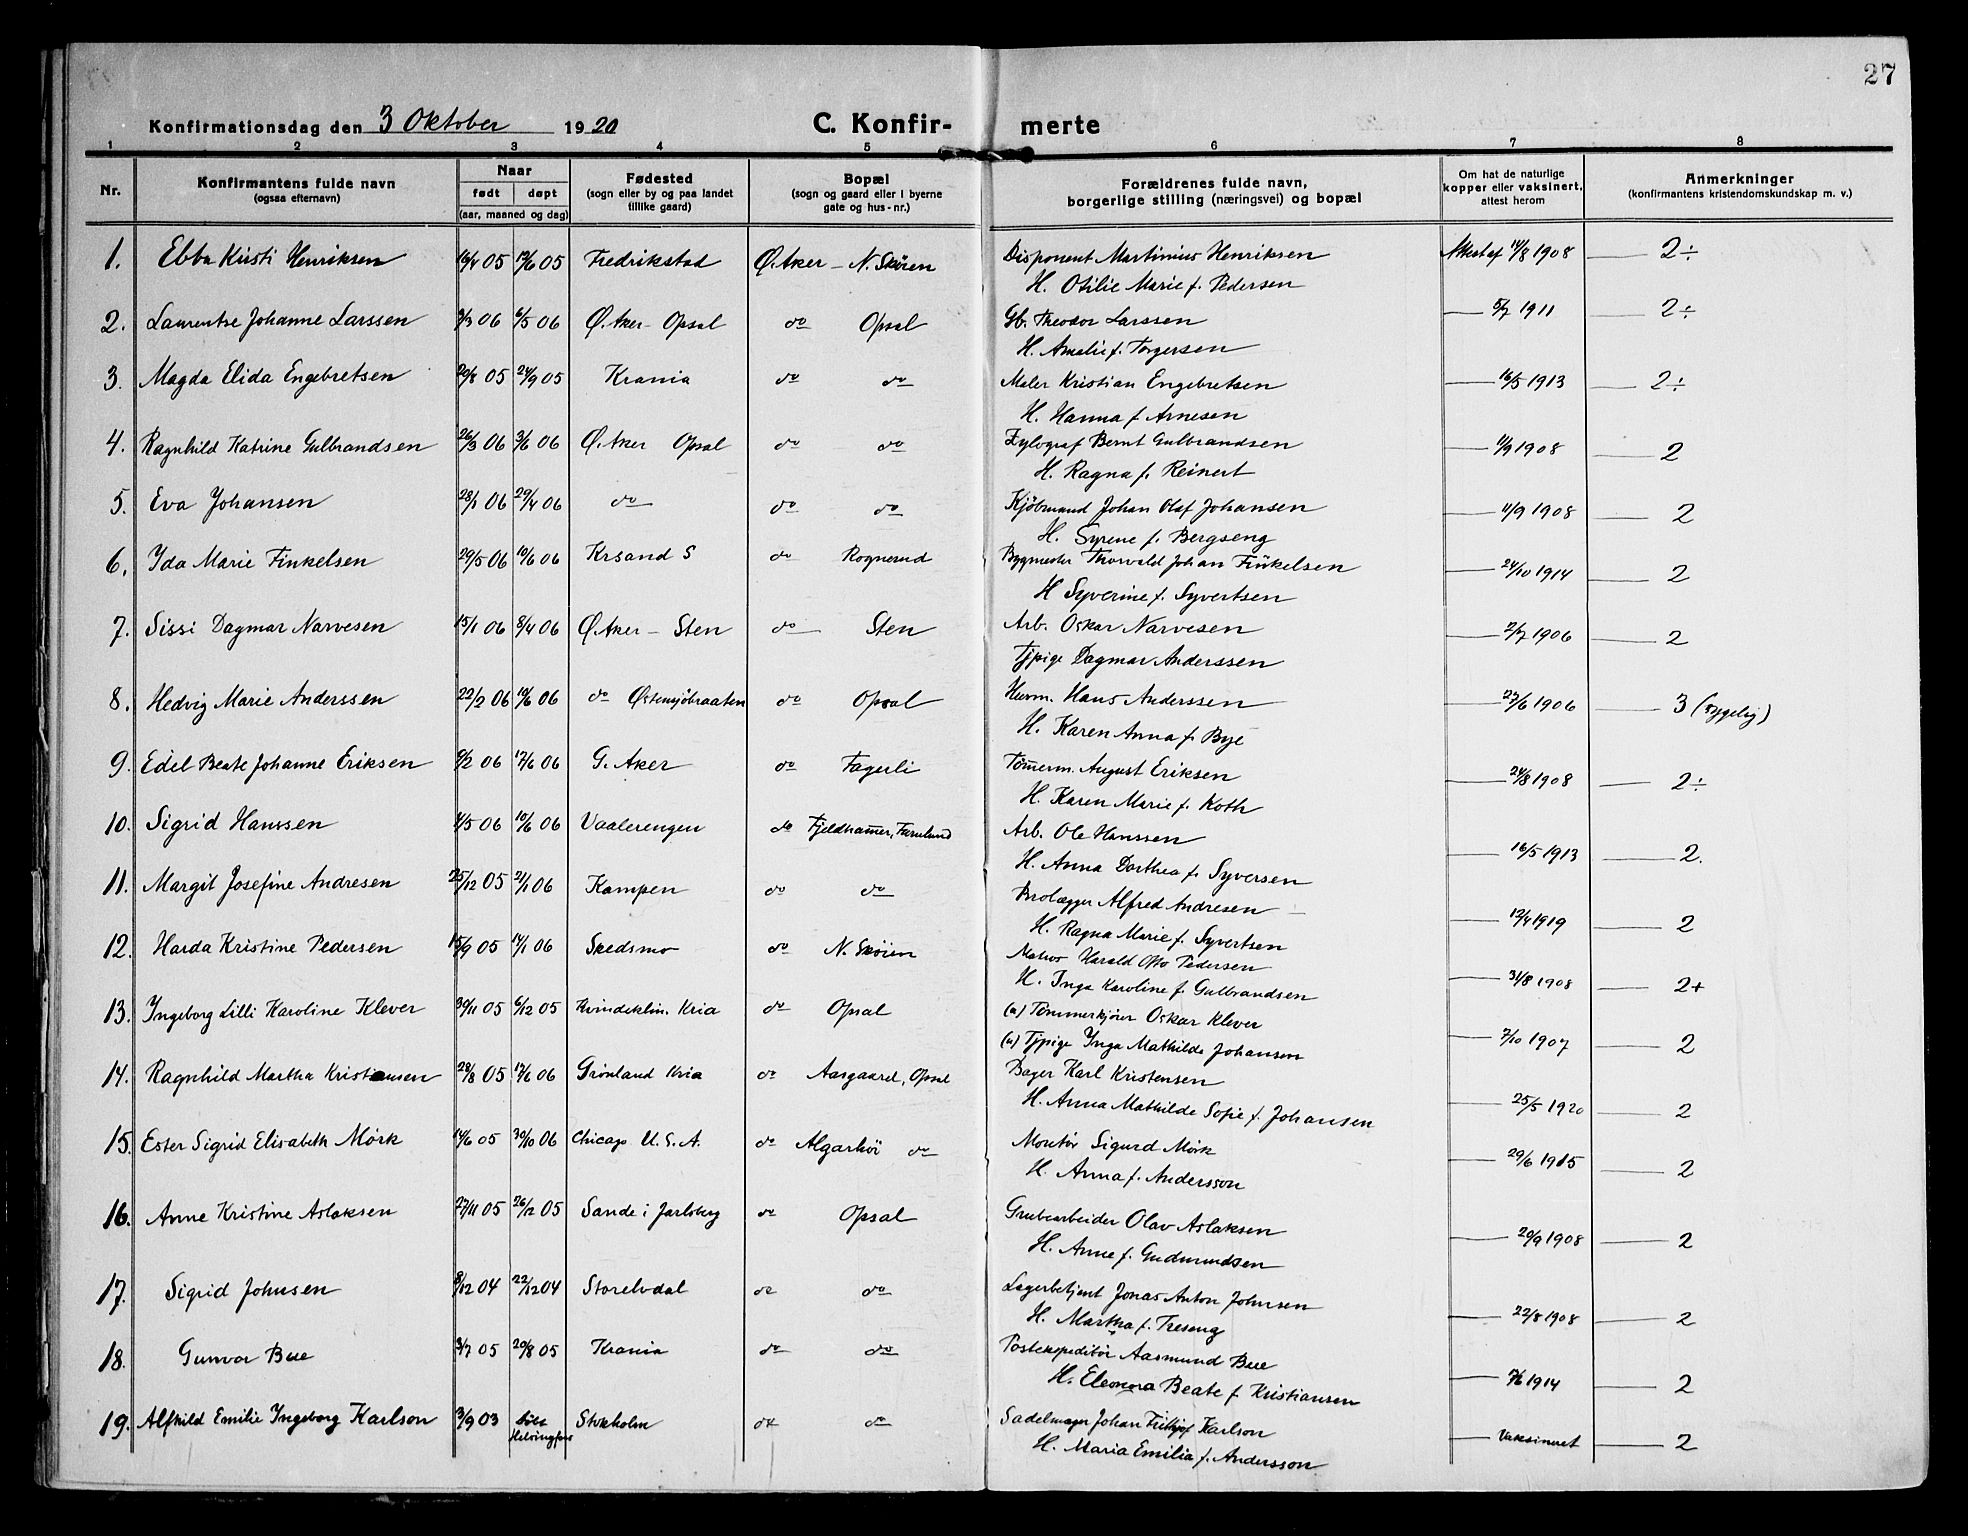 27
Konfirmationsdag den 3 Oktober 1920 C. Konfir- merte
1 2 3 4 5 6 7 8
Nr.
Konfirmantens fulde navn
(ogsaa efternavn)
Naar
født døpt
(aar, maaned og dag)
Fødested
(sogn eller by og paa landet
tillike gaard)
Bopæl
(sogn og gaard eller i byerne
gate og hus-nr.)
Forældrenes fulde navn,
borgerlige stilling (næringsvei) og bopæl
Om hat de naturlige
kopper eller vaksinert,
attest herom
Anmerkninger
(konfirmantens kristendomskundskap m. v.)
1. Ebba Kirsti Henriksen 16/4 05 12/6 05 Fredrikstad Ø. Aker - N. Skøien Disponent Martinius Henriksen Attest af 14/8 1908 — 2÷
H. Otilie Marie f. Pedersen
2. Laurentse Johanne Larssen 3/3 06 6/5 06 Ø. Aker - Opsal do Opsal Gb. Theodor Larssen — 5/7 1911 — 2÷
H. Amalie f. Torgersen
3. Magda Elida Engebretsen 20/8 05 24/9 05 Krania do do Maler Kristian Engebretsen — 16/5 1913 — 2÷
H. Hanna f. Arnesen
4. Ragnhild Katrine Gulbrandsen 26/3 06 3/6 06 Ø. Aker Opsal do do Xylograf Bernt Gulbrandsen — 11/9 1908 — 2
H. Ragna f. Reinert
5. Eva Johansen 28/1 06 29/4 06 do do do Kjöbmand Johan Olaf Johansen — 11/9 1908 — 2
H. Syrene f. Bergseng
6. Ida Marie Finkelsen 29/5 06 10/6 06 Krsand S do Rognerud Bygmester Thorvald Johan Finkelsen — 24/10 1914 — 2
H Syverine f. Syvertsen
7. Sissi Dagmar Narvesen 15/1 06 8/4 06 Ø. Aker - Sten do Sten Arb. Oskar Narvesen — 2/7 1906 — 2
Tjpige Dagmar Anderssen
8. Hedvig Marie Anderssen 22/2 06 10/6 06 do Østensjöbraaten do Opsal Hans Anderssen — 27/6 1906 — 3 (sygelig)
H. Karen Anna f. Bye
9. Edel Beate Johanne Eriksen 9/2 06 17/6 06 G. Aker do Fagerli Tömerm. August Eriksen — 24/8 1908 — 2÷
H. Karen Marie f. Koth
10. Sigrid Hanssen 4/5 06 10/6 06 Vaalerengen do Fjeldhamer, Furulund Arb. Ole Hanssen — 16/5 1913 — 2.
H. Anna Dorthea f. Syversen
11. Margit Josefine Andresen 25/12 05 21/1 06 Kampen do do Brolægger Alfred Andresen — 12/4 1919 — 2
H. Ragna Marie f. Syvertsen
12. Harda Kristine Pedersen 15/9 05 14/1 06 Skedsmo do N. Skøien Matros Harald Otto Pedersen — 31/8 1908 — 2+
H. Inga Karoline f. Gulbrandsen
13. Ingeborg Lilli Karoline Klever 30/11 05 6/12 05 Kvindeklin. Kria do Opsal (u) Tömmerkjører Oskar Klever — 7/10 1907 — 2
(u) Tjpige Inga Mathilde Johansen
14. Ragnhild Martha Kristiansen 28/8 05 17/6 06 Grønland Kria do Aasgaard, Opsal Bager Karl Kristensen — 25/5 1920 — 2
H. Anna Mathilde Sofie f. Johansen
15. Ester Sigrid Elisabeth Mörk 14/6 05 30/10 06 Chicago U.S.A. do Algarhöi do Montör Sigurd Mörk — 29/6 1915 — 2
H. Anna f. Andersson
16. Anne Kristine Aslaksen 27/11 05 26/12 05 Sande i Jarlsberg do Opsal Grubearbeider Olav Aslaksen — 20/9 1908 — 2
H. Anne f. Gudmundsen
17. Sigrid Johnsen 8/12 04 22/12 04 Storelvdal do do Lagerbetjent Jonas Anton Johnsen — 22/8 1908 — 2
H. Martha f. Treseng
18. Gunvor Bue 3/7 05 20/8 05 Krania do do Postekspeditör Aasmund Bue — 7/6 1914 — 2
H. Eleonora Beate f. Kristiansen
19. Alfhild Emilie Ingeborg Karlson 3/9 03 Helsingfors Stockholm do do Sadelmager Johan Frithjof Karlson — Vaksineret — 2
H. Maria Emilia f. Andersson